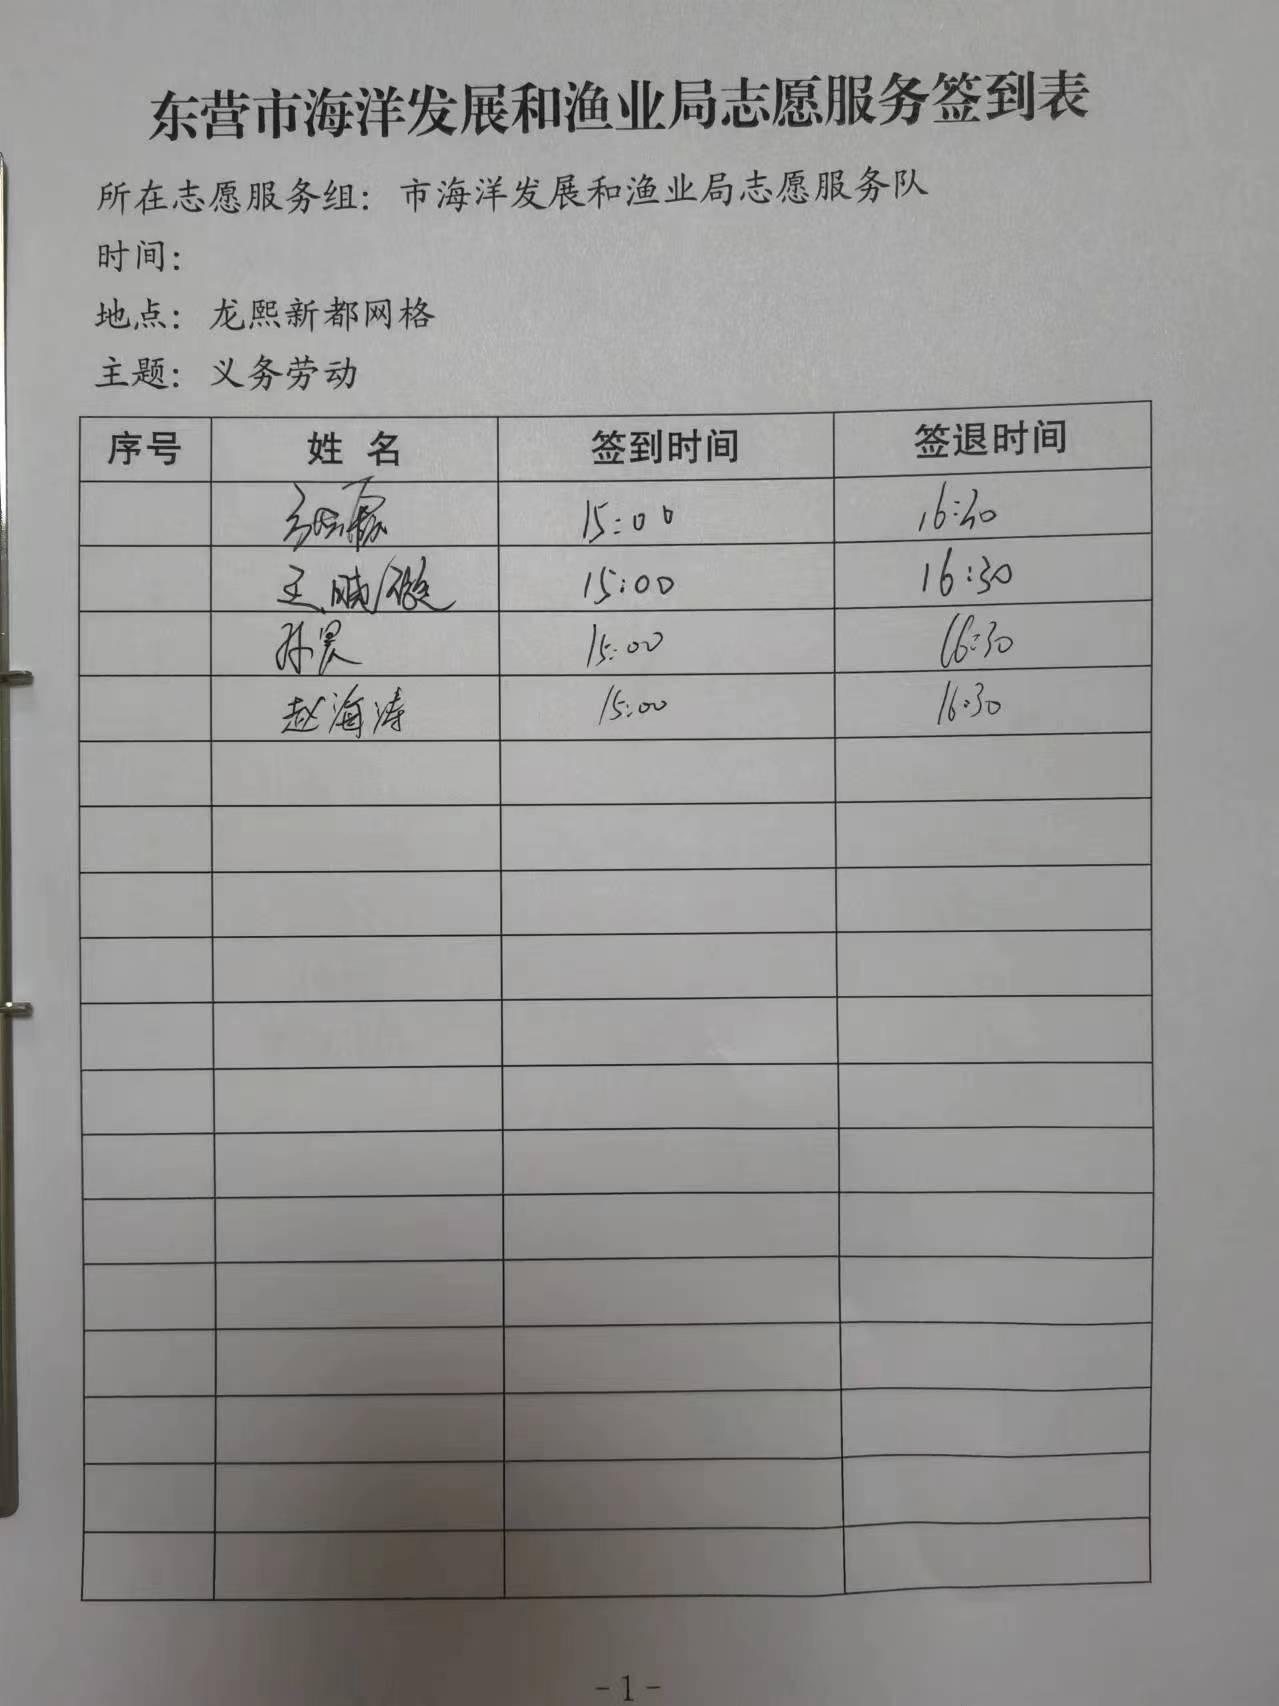 东营市海洋发展和渔业局志愿服务签到表
所在志愿服务组：市海洋发展和渔业局志愿服务队
时间：
地点：龙熙新都网格
主题：义务劳动
序号 姓名 签到时间 签退时间
15:00 16:30
王 15:00 16:30
孙昊 15:00 16:30
赵海涛 15:00 16:30
-1-